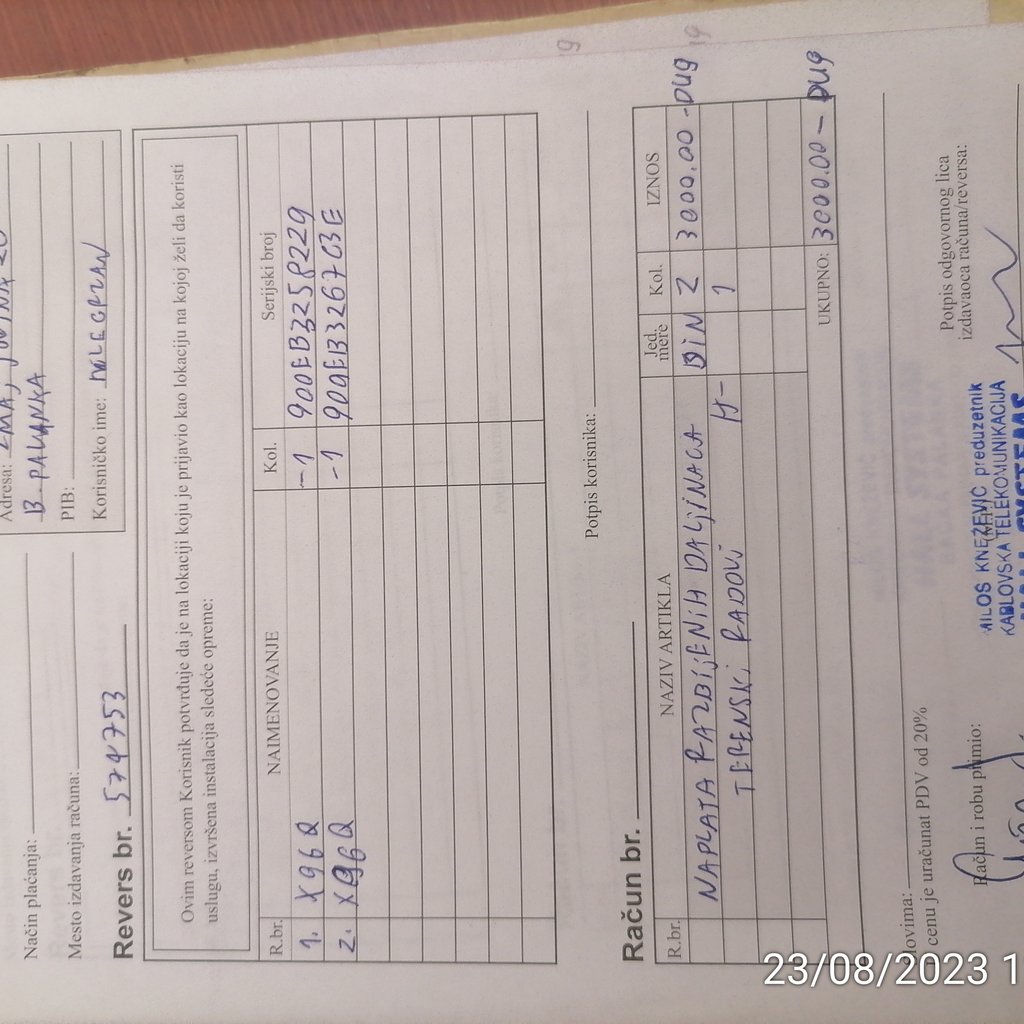 Način plaćanja:
Mesto izdavanja računa:
Adresa:
B. PALANKA
PIB:
Korisničko ime: MILEGRVAN
Revers br. 574753
Ovim reversom Korisnik potvrđuje da je na lokaciji koju je prijavio kao lokaciju na kojoj želi da koristi
uslugu, izvršena instalacija sledeće opreme:
R.br. NAIMENOVANJE Kol. Serijski broj
1. X96Q -1 900EB325P229
2. X96Q -1 909EB3267C3E
Potpis korisnika:
Račun br.
R.br. NAZIV ARTIKLA Jed. mere Kol. IZNOS
NAPLATA RAZBIJENIH DALJINACA DIN 2 3000.00 - DUG
TERENSKI RADOVI H- 1
UKUPNO: 3000.00 - DUG
lovima:
cenu je uračunat PDV od 20%
Račun i robu primio:
Potpis odgovornog lica
izdavaoca računa/reversa:
MILOS KNEZEVIC preduzetnik
KABLOVSKA TELEKOMUNIKACIJA
23/08/2023 1